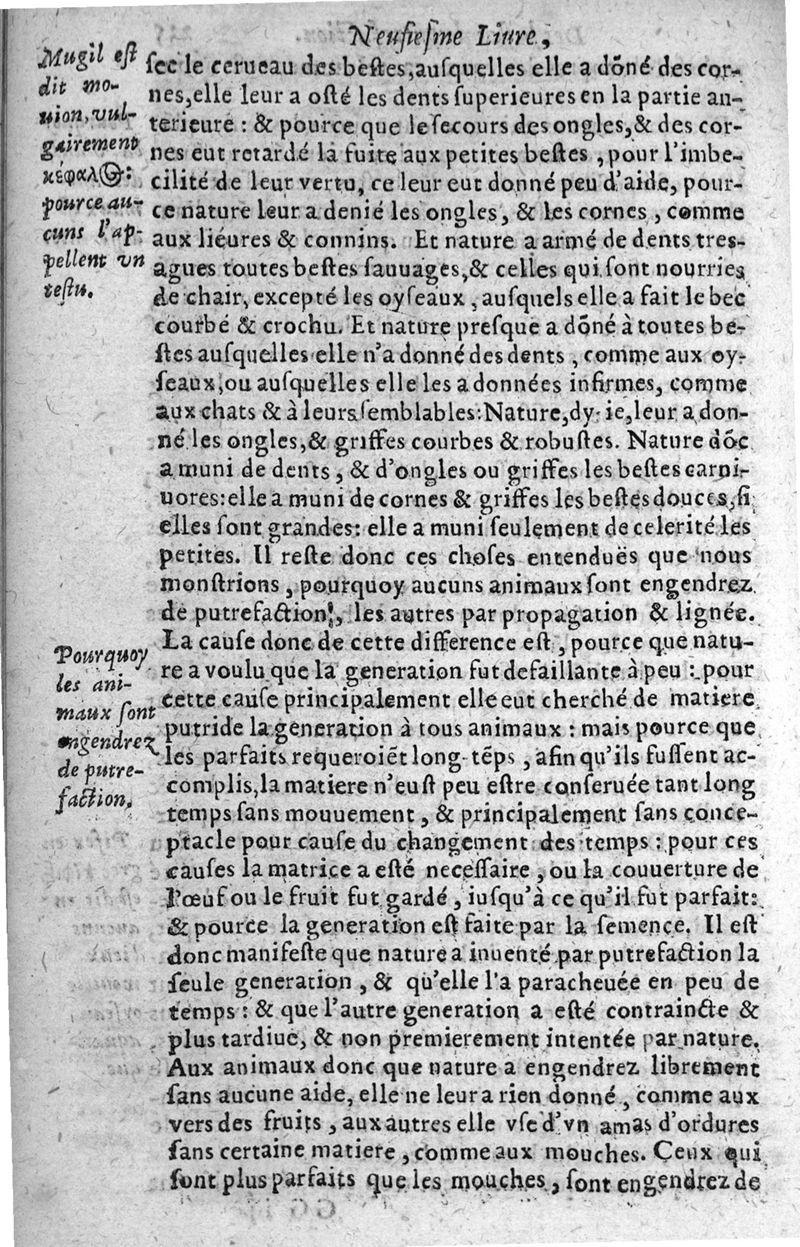 Neufiefme Liure,
Mugil eſt
dit mo-
uion, vul-
gairement
κέφαλ⊙:
pource au-
cuns l'ap-
pellent vn
teſtu.
ſec le cerueau des beſtes, auſquelles elle a dõné des cor-
nes, elle leur a oſté les dents ſuperieures en la partie an-
terieure : & pource que le ſecours des ongles, & des cor-
nes eut retardé la fuite aux petites beſtes, pour l'imbe-
cilité de leur vertu, ce leur eut donné peu d'aide, pour-
ce nature leur a denié les ongles, & les cornes, comme
aux liéures & connins. Et nature a armé de dents tres-
agues toutes beſtes ſauuages, & celles qui ſont nourries
de chair, excepté les oyſeaux, auſquels elle a fait le bec
courbé & crochu. Et nature preſque a dõné à toutes be-
ſtes auſquelles elle n'a donné des dents, comme aux oy-
ſeaux, ou auſquelles elle les a données infirmes, comme
aux chats & à leurs ſemblables: Nature, dy-ie, leur a don-
né les ongles, & griffes courbes & robuſtes. Nature dõc
a muni de dents, & d'ongles ou griffes les beſtes carni-
uores: elle a muni de cornes & griffes les beſtes douces, ſi
elles ſont grandes: elle a muni ſeulement de celerité les
petites. Il reſte donc ces choſes entenduës que nous
monſtrions, pourquoy aucuns animaux ſont engendrez
de putrefaction, les autres par propagation & lignée.
Pourquoy
les ani-
maux ſont
engendrez
de putre-
faction.
La cauſe donc de cette difference eſt, pource que natu-
re a voulu que la generation fut defaillante à peu : pour
cette cauſe principalement elle eut cherché de matiere
putride la generation à tous animaux : mais pource que
les parfaits requeroiẽt long-tẽps, afin qu'ils fuſſent ac-
complis, la matiere n'euſt peu eſtre conſeruée tant long
temps ſans mouuement, & principalement ſans conce-
ptacle pour cauſe du changement des temps : pour ces
cauſes la matrice a eſté neceſſaire, ou la couuerture de
l'œuf ou le fruit fut gardé, iuſqu'à ce qu'il fut parfait:
& pource la generation eſt faite par la ſemence. Il eſt
donc manifeſte que nature a inuenté par putrefaction la
ſeule generation, & qu'elle l'a paracheuée en peu de
temps : & que l'autre generation a eſté contraincte &
plus tardiue, & non premierement intentée par nature.
Aux animaux donc que nature a engendrez librement
ſans aucune aide, elle ne leur a rien donné, comme aux
vers des fruits, aux autres elle vſe d'vn amas d'ordures
ſans certaine matiere, comme aux mouches. Ceux qui
ſont plus parfaits que les mouches, ſont engendrez de